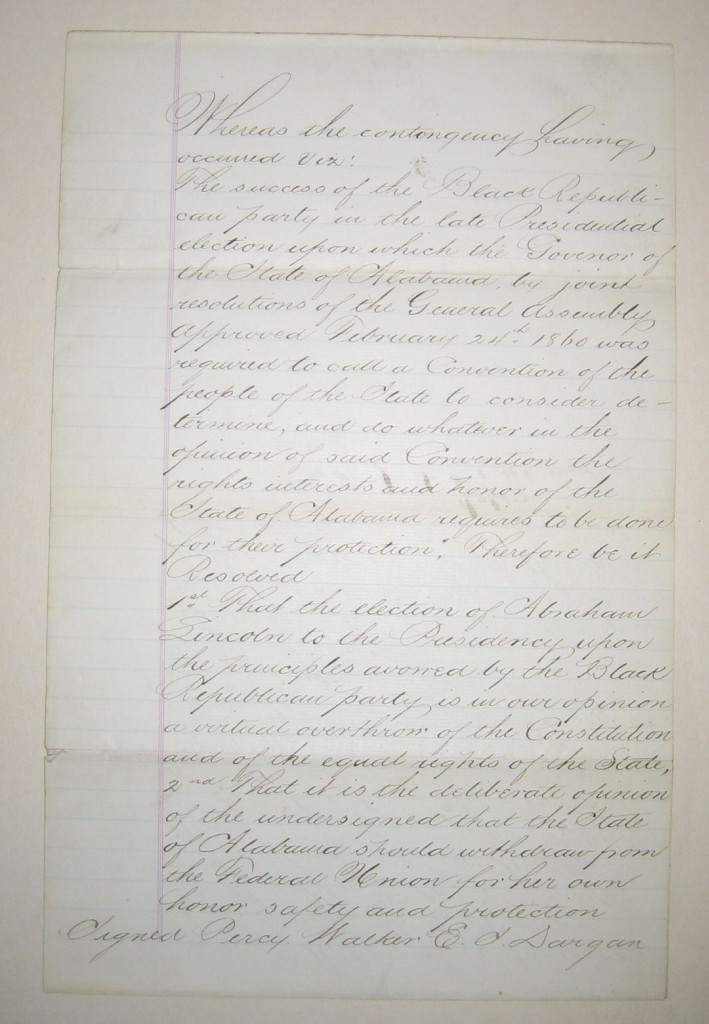 Whereas the contengency having
occurred viz:
The success of the Black Republi-
can party in the late Presidential
election upon which the Govenor of
the State of Alabama, by joint
resolutions of the General Assembly
approved February 24th 1860 was
required to call a Convention of the
people of the State to consider de-
termine, and do whatever in the
opinion of said Convention the
rights interests and honor of the
State of Alabama requires to be done
for their protection". Therefore be it
Resolved
1st That the election of Abraham
Lincoln to the Presidency upon
the principles avowed by the Black
Republican party is in our opinion
a virtual overthrow of the Constitution
and of the equal rights of the State,
2nd That it is the deliberate opinion
of the undersigned that the State
of Alabama should withdraw from
the Federal Union for her own
honor safety and protection
Signed Percy Walker E. S. Dargan